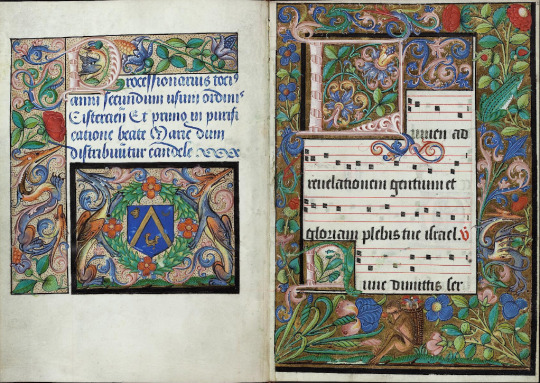 Processionarius toci⁹
anni secundum usum ordinis
Cistercien̄ Et primo in purifi
catione beate Marie dum
distribuūtur candele
Lumen ad
revelationem gentium et
gloriam plebis tue israel. V
Nunc dimittis ser